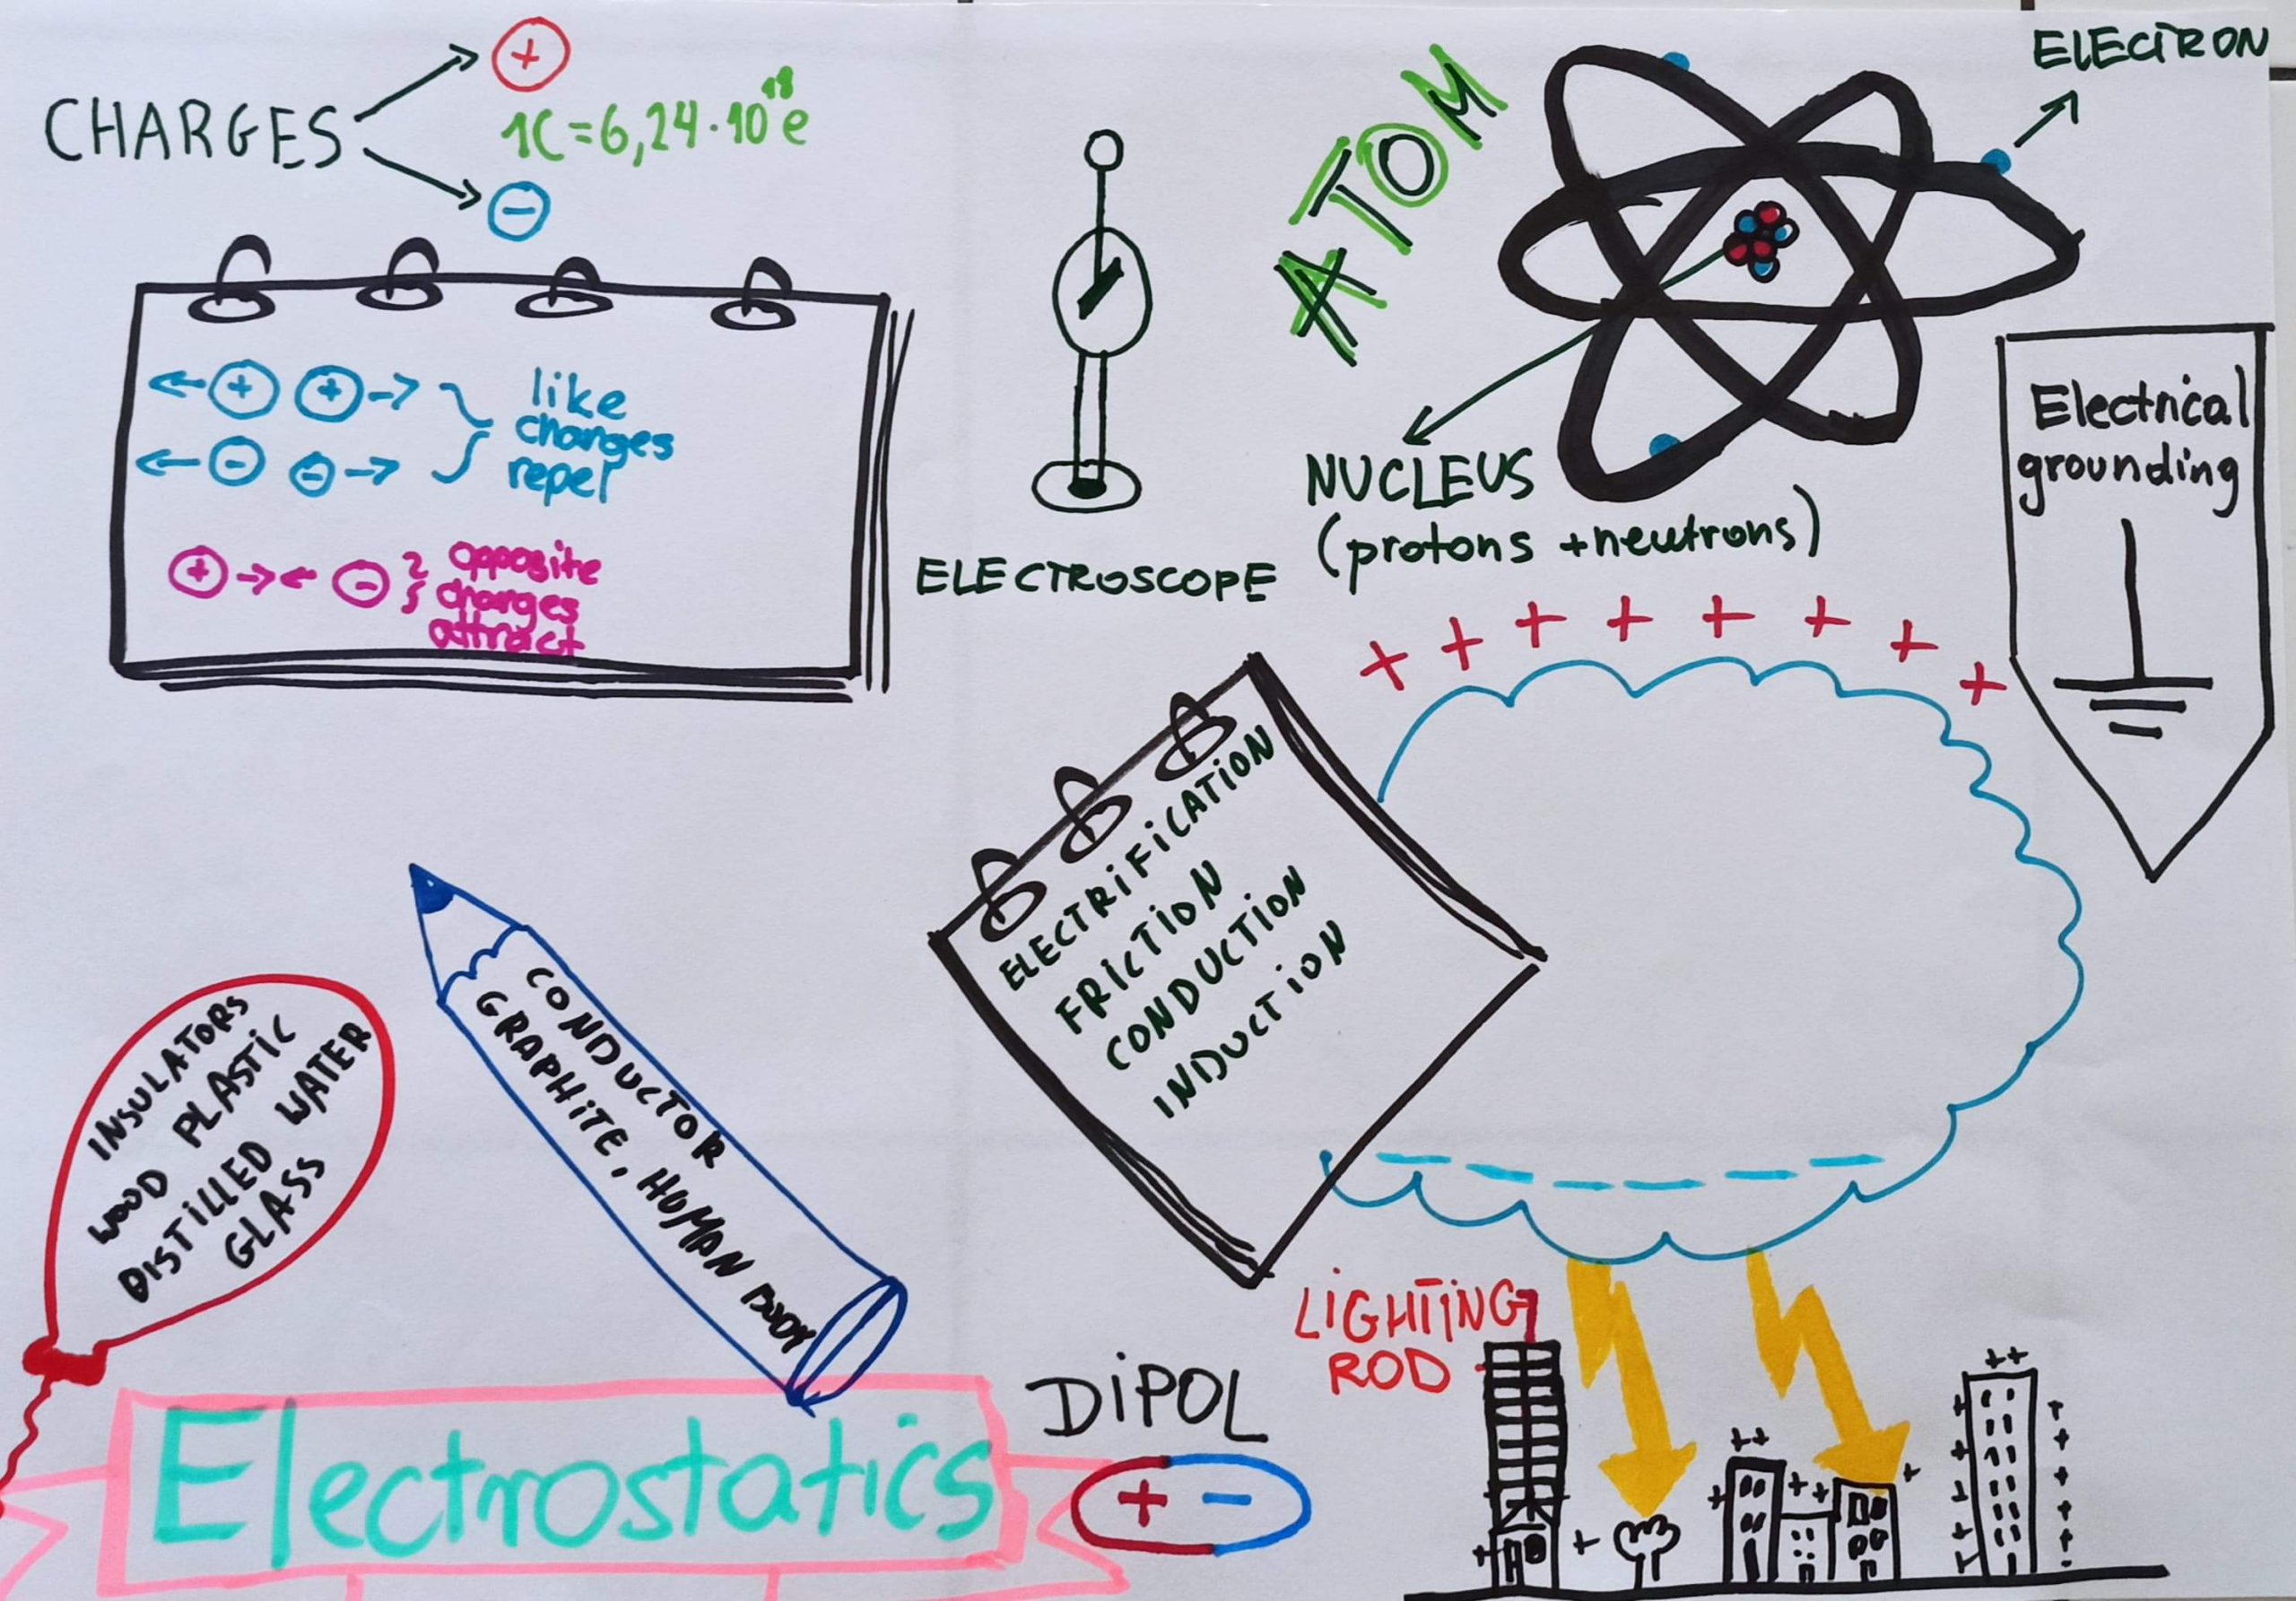 CHARGES
+
1C=6,24·10¹⁸e
−
← + + →
← − − →
like
charges
repel
+ → ← −
opposite
charges
attract
ELECTROSCOPE
ATOM
ELECTRON
NUCLEUS
(protons +neutrons)
Electrical
grounding
+ + + + + + + +
ELECTRIFICATION
FRICTION
CONDUCTION
INDUCTION
− − − − − −
CONDUCTOR
GRAPHITE, HUMAN BODY
INSULATORS
WOOD PLASTIC
DISTILLED WATER
GLASS
Electrostatics
DiPOL
+ −
LIGHTING
ROD